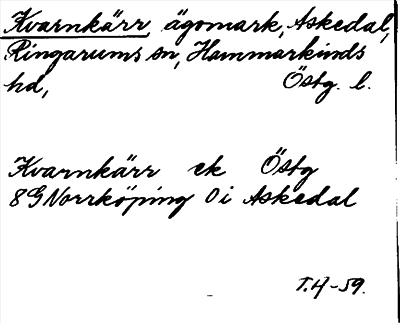 Kvarnkärr, ägomark, Askedal,
Ringarums sn, Hammarkinds
hd, Östg. l.
Kvarnkärr ek Östg
8G Norrköping 0i Askedal
T.H-59.